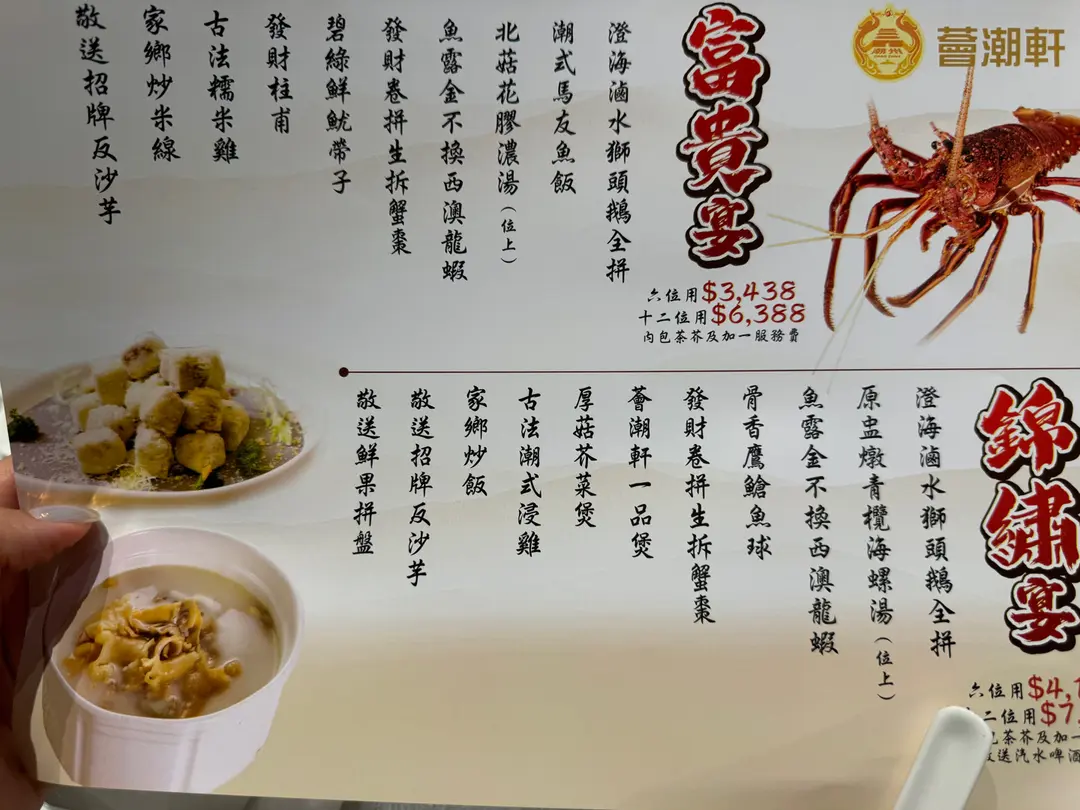 薈潮軒
富貴宴
六位用$3,438
十二位用$6,388
內包茶芥及加一服務費
澄海滷水獅頭鵝全拼
潮式馬友魚飯
北菇花膠濃湯(位上)
魚露金不換西澳龍蝦
發財卷拼生拆蟹棗
碧綠鮮魷帶子
發財柱甫
古法糯米雞
家鄉炒米線
敬送招牌反沙芋
錦繡宴
六位用$4,
二位用$7,
茶芥及加一
送汽水啤酒
澄海滷水獅頭鵝全拼
原盅燉青欖海螺湯(位上)
魚露金不換西澳龍蝦
骨香鷹鯧魚球
發財卷拼生拆蟹棗
薈潮軒一品煲
厚菇芥菜煲
古法潮式浸雞
家鄉炒飯
敬送招牌反沙芋
敬送鮮果拼盤